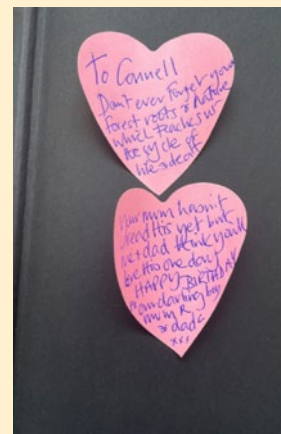 To Connell
Don't ever forget your
forest roots & nature
which teaches us
the cycle of
life & death
Your mum hasn't
read this yet but
me + dad think you'll
love this one day!
HAPPY BIRTHDAY
darling boy
mum R
& dad
xxx